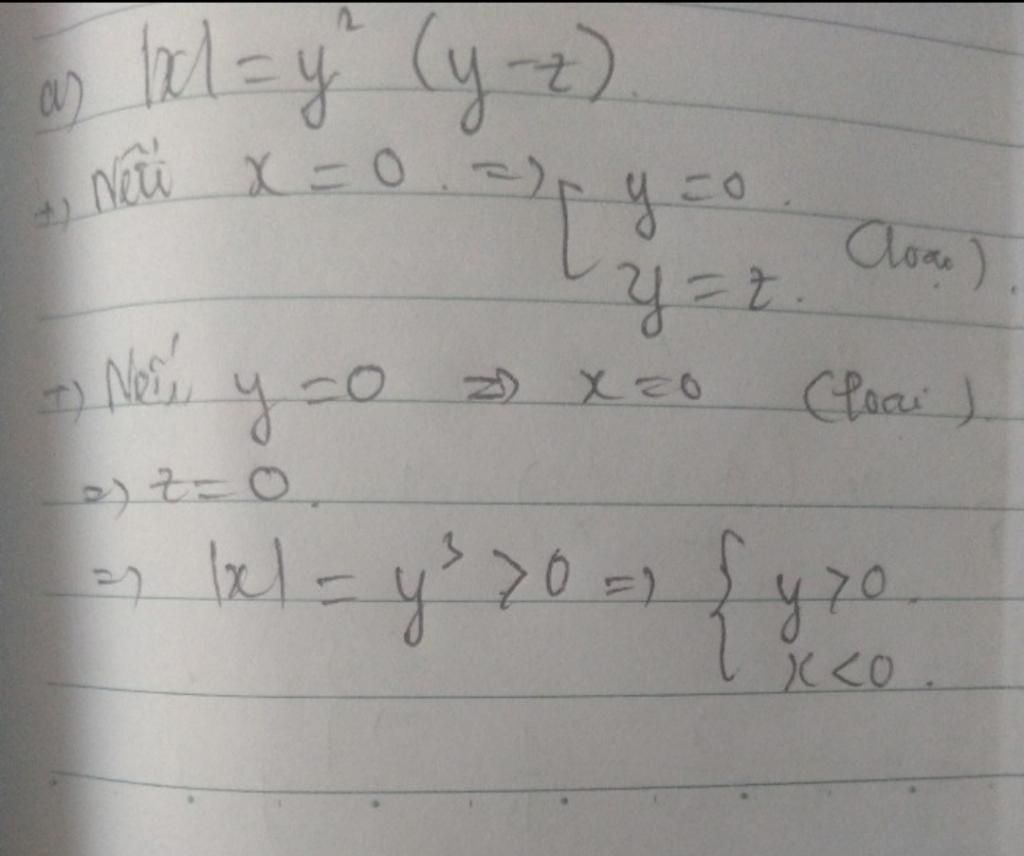 a) |x| = y² (y - z).
+) Nếu x = 0. => [ y = 0.
y = z. (loại).
+) Nếu y = 0 => x = 0 (loại)
=> z = 0.
=> |x| = y³ > 0 => { y > 0.
x < 0.